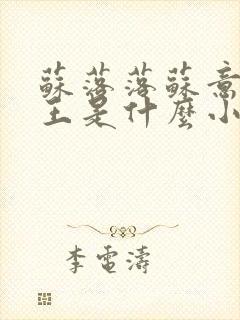 蘇落落蘇意
主是什麼小
李電濤